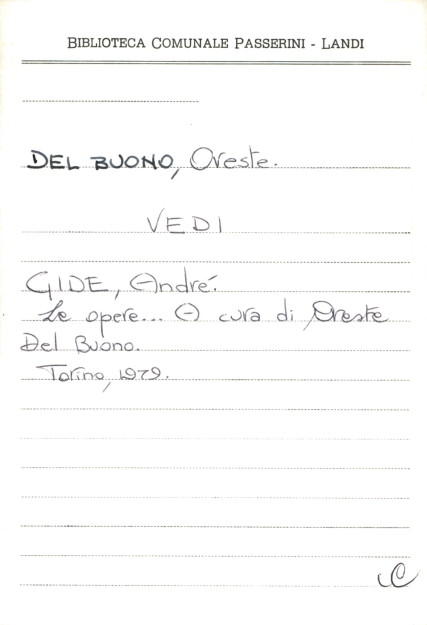 BIBLIOTECA COMUNALE PASSERINI - LANDI
DEL BUONO, Oreste.
VEDI
GIDE, André.
Le opere... A cura di Oreste
Del Buono.
Torino, 1979.